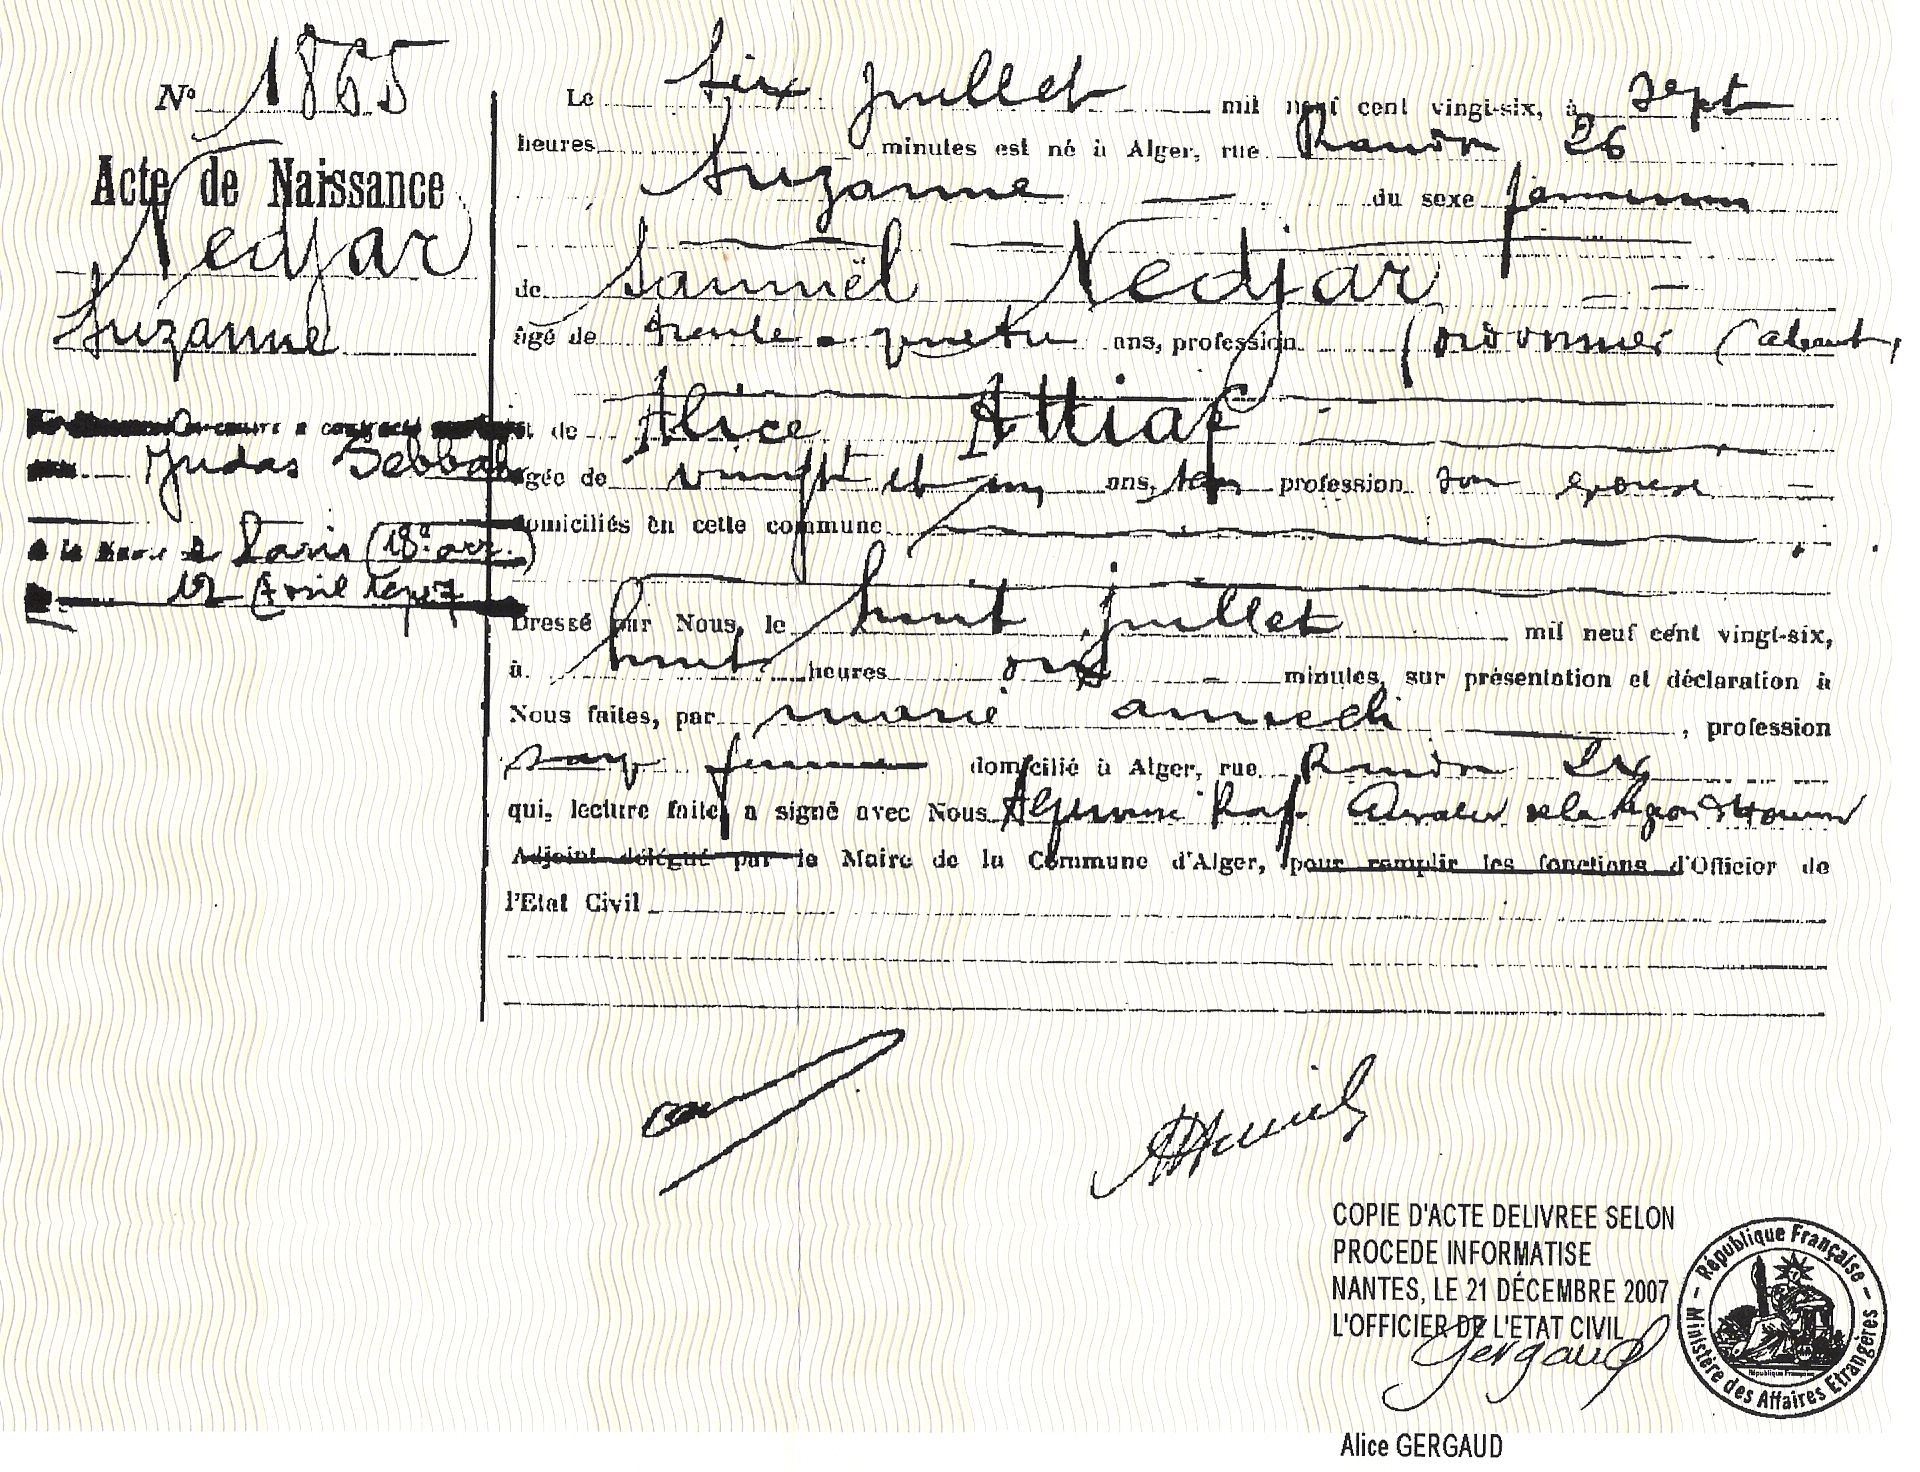 N° 1865
Acte de Naissance
Nedjar
Suzanne
a contracté
Judas Sebbah
à la Mairie de Paris (18e arr.)
12 Avril
Le six juillet mil neuf cent vingt-six, à sept
heures minutes est né à Alger, rue Randon 26
Suzanne du sexe féminin
de Samuël Nedjar
âgé de trente-quatre ans, profession Cordonnier (absent)
et de Alice Attiaf
âgée de vingt et un ans, sans profession son épouse
domiciliés en cette commune
Dressé par Nous, le huit juillet mil neuf cent vingt-six,
à huit heures minutes, sur présentation et déclaration à
Nous faites, par marie , profession
sage femme domicilié à Alger, rue Randon
qui, lecture faite, a signé avec Nous Raf. de la Légion d'Honneur
Adjoint délégué par le Maire de la Commune d'Alger, pour remplir les fonctions d'Officier de
l'Etat Civil
COPIE D'ACTE DELIVREE SELON
PROCEDE INFORMATISE
NANTES, LE 21 DÉCEMBRE 2007
L'OFFICIER DE L'ETAT CIVIL
Gergaud
République Française
Ministère des Affaires Etrangères
République Française
Alice GERGAUD